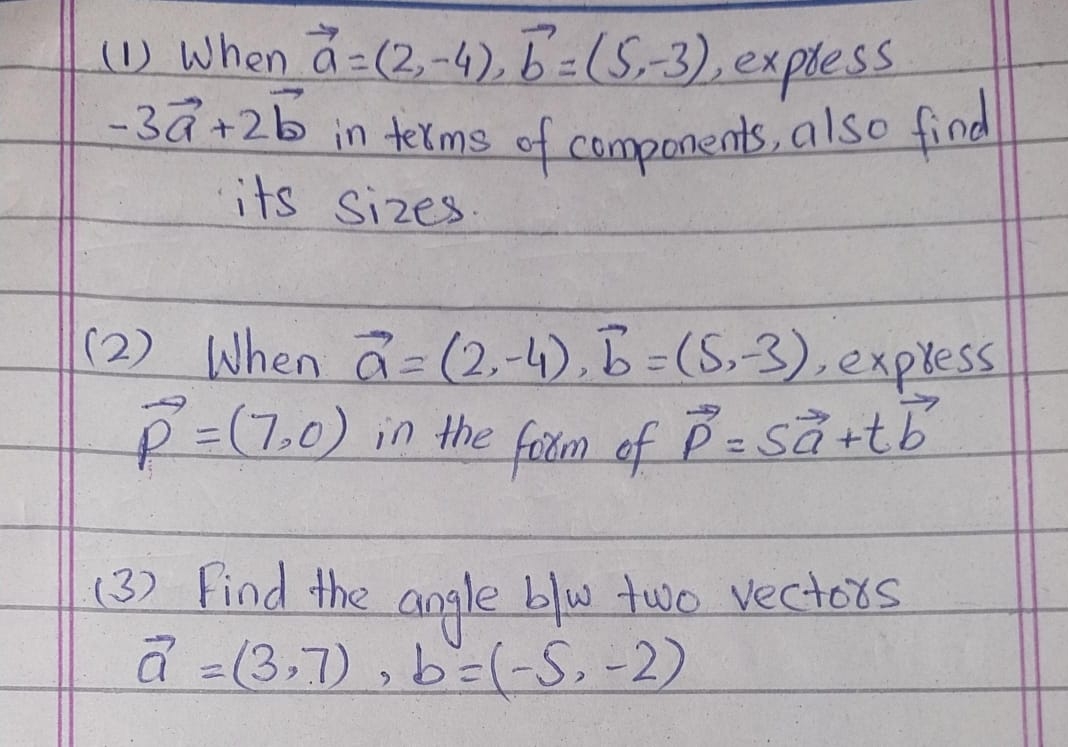 (1) When a⃗ = (2,-4), b⃗ = (5,-3), express
-3a⃗ + 2b⃗ in terms of components, also find
its sizes.
(2) When a⃗ = (2,-4), b⃗ = (5,-3), express
p⃗ = (7,0) in the form of p⃗ = sa⃗ + tb⃗
(3) Find the angle b/w two vectors
a⃗ = (3,7), b = (-5, -2)